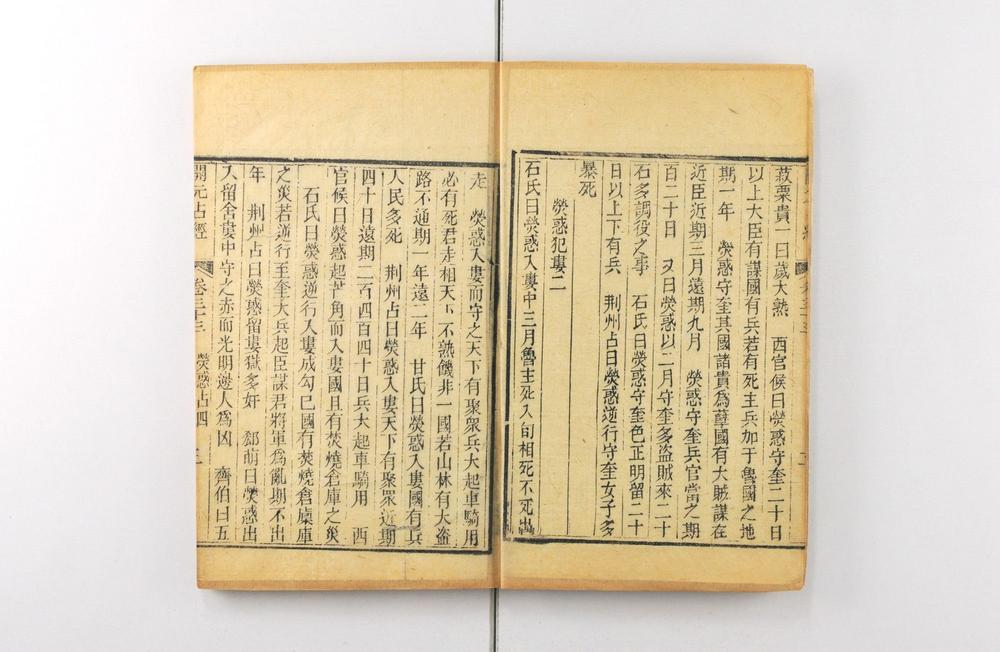 菽粟貴一曰歲大熟　西官候曰熒惑守奎二十日
以上大臣有謀國有兵若有死主兵加于魯國之地
期一年　熒惑守奎其國諸貴爲孽國有大賊謀在
近臣近期三月遠期九月　熒惑守奎兵官當之期
百二十日　又曰熒惑以二月守奎多盜賊來二十
石多調役之事　石氏曰熒惑守奎色正明留二十
日以上下有兵　荆州占曰熒惑逆行守奎女子多
暴死
熒惑犯婁二
石氏曰熒惑入婁中三月魯主死入旬相死不死出
走　熒惑入婁而守之天下有聚衆兵大起車騎用
必有死君走相天下不熟饑非一國若山林有大盜
路不通期一年遠二年　甘氏曰熒惑入婁國有兵
人民多死　荆州占曰熒惑入婁天下有聚眾近期
四十日遠期二百四百四十日兵大起車騎用　西
官候曰熒惑起芒角而入婁國且有焚燒倉庫之災
石氏曰熒惑逆行入婁成勾巳國有焚燒倉廩庫
之災若逆行至奎大兵起臣謀君將軍爲亂期不出
年　荆州占曰熒惑留婁獄多奸　郄萌曰熒惑出
入留舍婁中守之赤而光明邊人爲凶　齊伯曰五
開元占經　卷三十三　熒惑占四